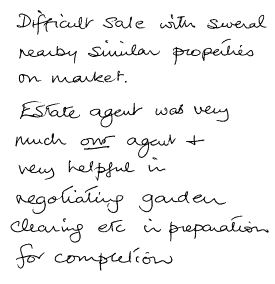 Difficult sale with several
nearby similar properties
on market.
Estate agent was very
much our agent +
very helpful in
negotiating garden
clearing etc in preparation
for completion